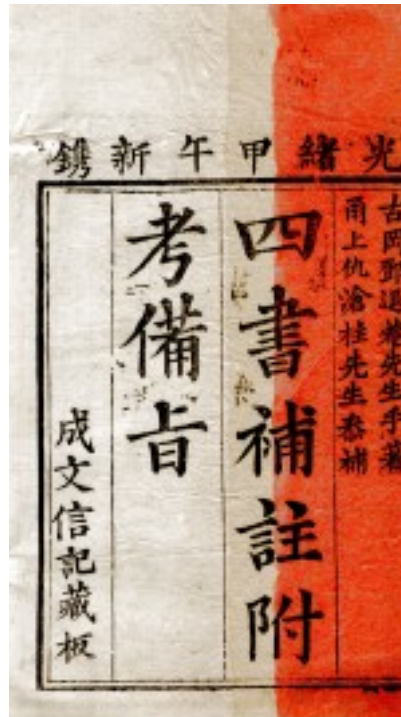 光緒甲午新鐫
古岡鄧退菴先生手著
甬上仇滄柱先生叅補
四書補註附
考備旨
成文信記藏板